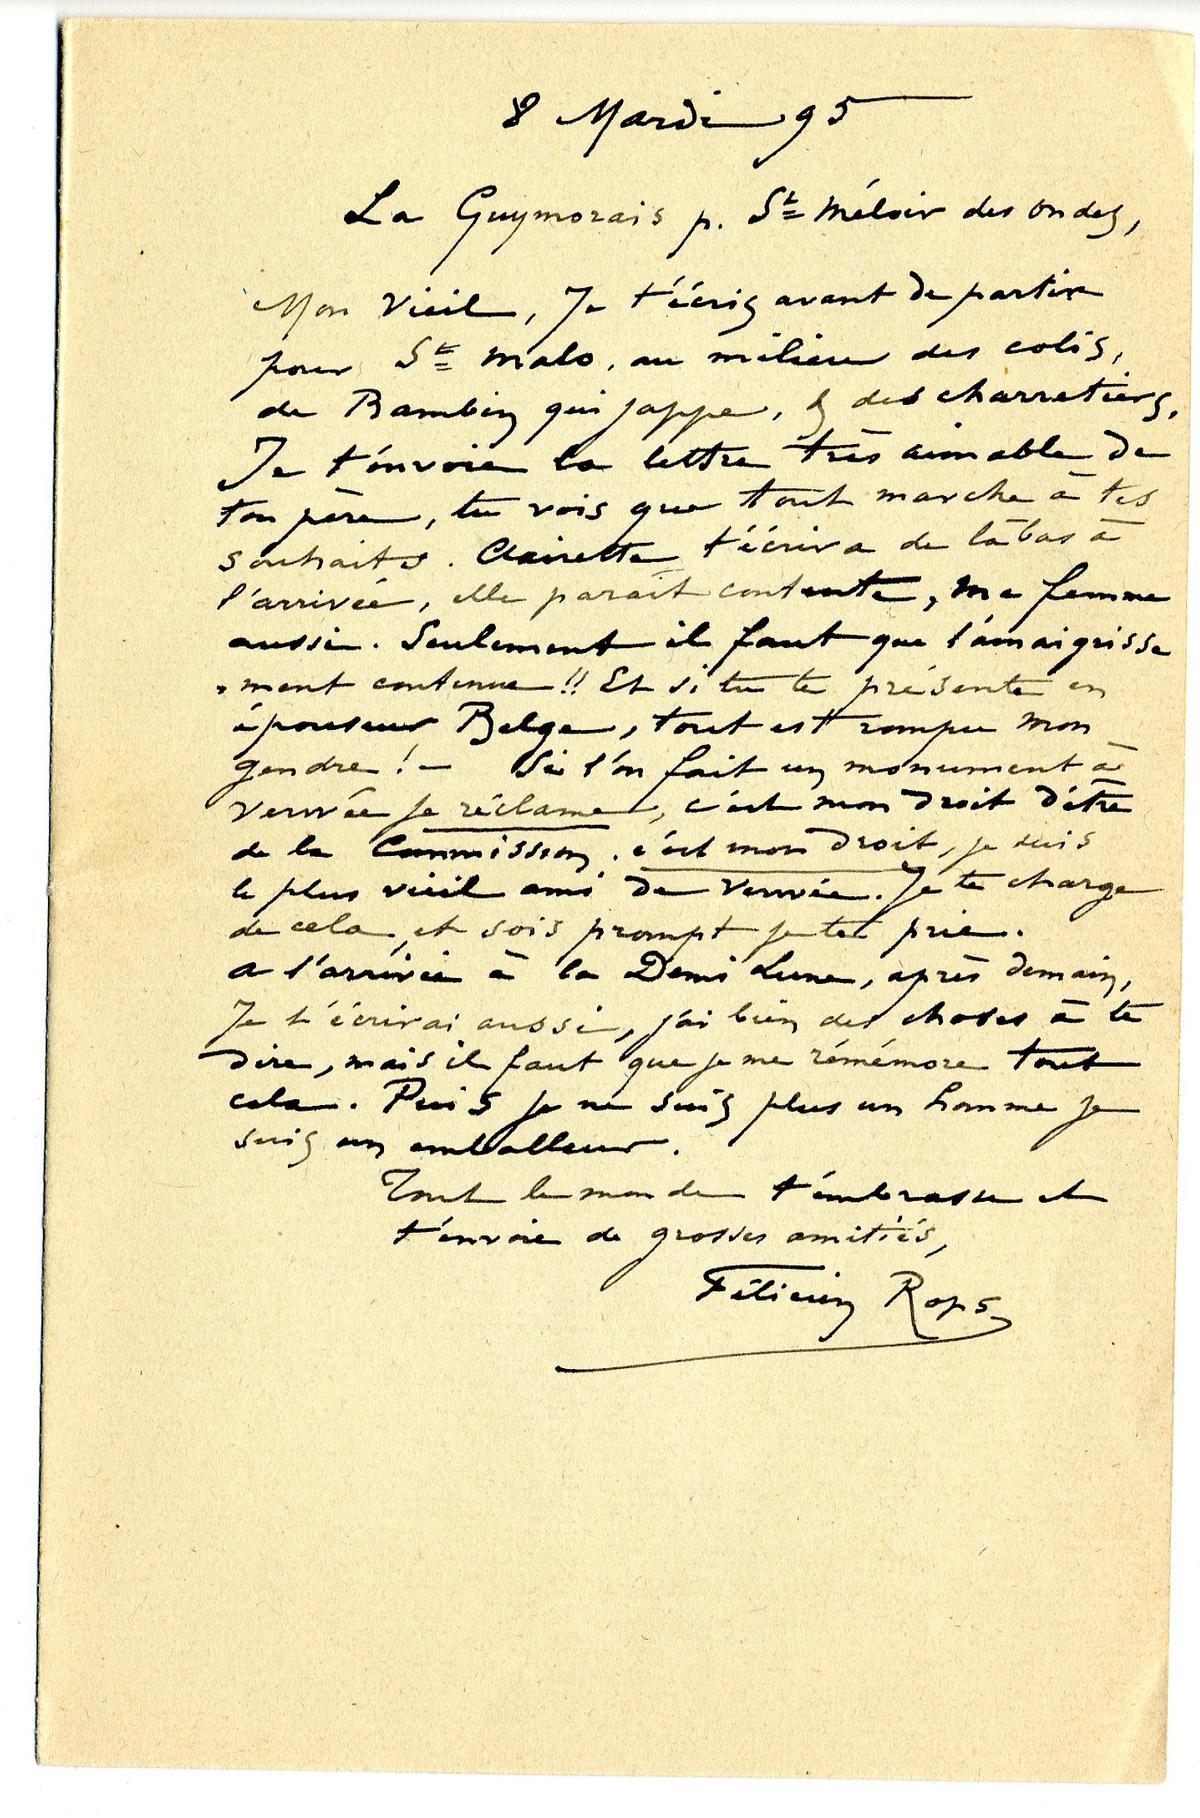 8 Mardi 95
La Guymorais p. St Méloir des ondes,
Mon Vieil, Je t'écris avant de partir
pour St Malo, au milieu des colis,
de Bambin qui jappe, & des charretiers.
Je t'envoie la lettre très aimable de
ton père, tu vois que tout marche à tes
souhaits. Clairette t'écrira de làbas à
l'arrivée, elle paraît contente, ma femme
aussi. Seulement il faut que l'amaigrisse
-ment continue!! Et si tu te présente en
épouseur Belge, tout est rompu mon
gendre! – Si l'on fait un monument à
Verwée je réclame, c'est mon droit d'être
de la Commission. c'est mon droit, je suis
le plus vieil ami de Verwée. Je te charge
de cela, et sois prompt je te prie.
A l'arrivée à la Demi Lune, après demain,
Je t'écrirai aussi, j'ai bien des choses à te
dire, mais il faut que je me rémémore tout
cela. Puis je ne suis plus un homme je
suis un emballeur.
Tout le monde t'embrasse et
t'envoie de grosses amitiés,
Félicien Rops